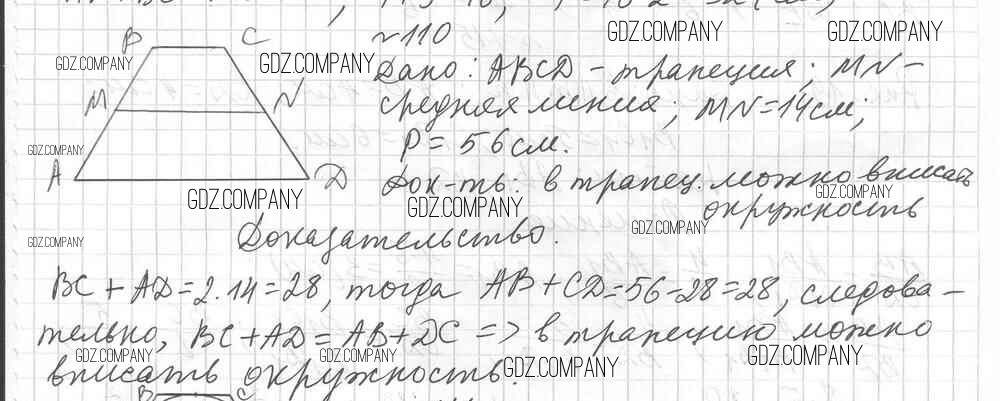 №110
B C
Дано: ABCD - трапеция; MN -
M N
средняя линия; MN = 14 см;
P = 56 см.
A D
Док-ть: в трапец. можно вписать
окружность
Доказательство.
BC + AD = 2·14 = 28, тогда AB + CD = 56 - 28 = 28, следова-
тельно, BC + AD = AB + DC => в трапецию можно
вписать окружность.
B C
GDZ.COMPANY
GDZ.COMPANY
GDZ.COMPANY
GDZ.COMPANY
GDZ.COMPANY
GDZ.COMPANY
GDZ.COMPANY
GDZ.COMPANY
GDZ.COMPANY
GDZ.COMPANY
GDZ.COMPANY
GDZ.COMPANY
GDZ.COMPANY
GDZ.COMPANY